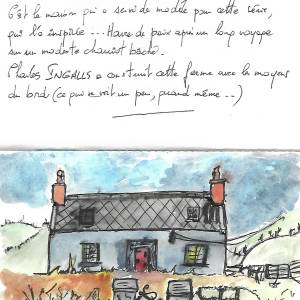 C'est la maison qui a servi de modèle pour cette série,
qui l'a inspirée... Havre de paix après un long voyage
sur un modeste chariot bâché.
Charles INGALLS a construit cette ferme avec les moyens
du bord (ce qui se voit un peu, quand même...)